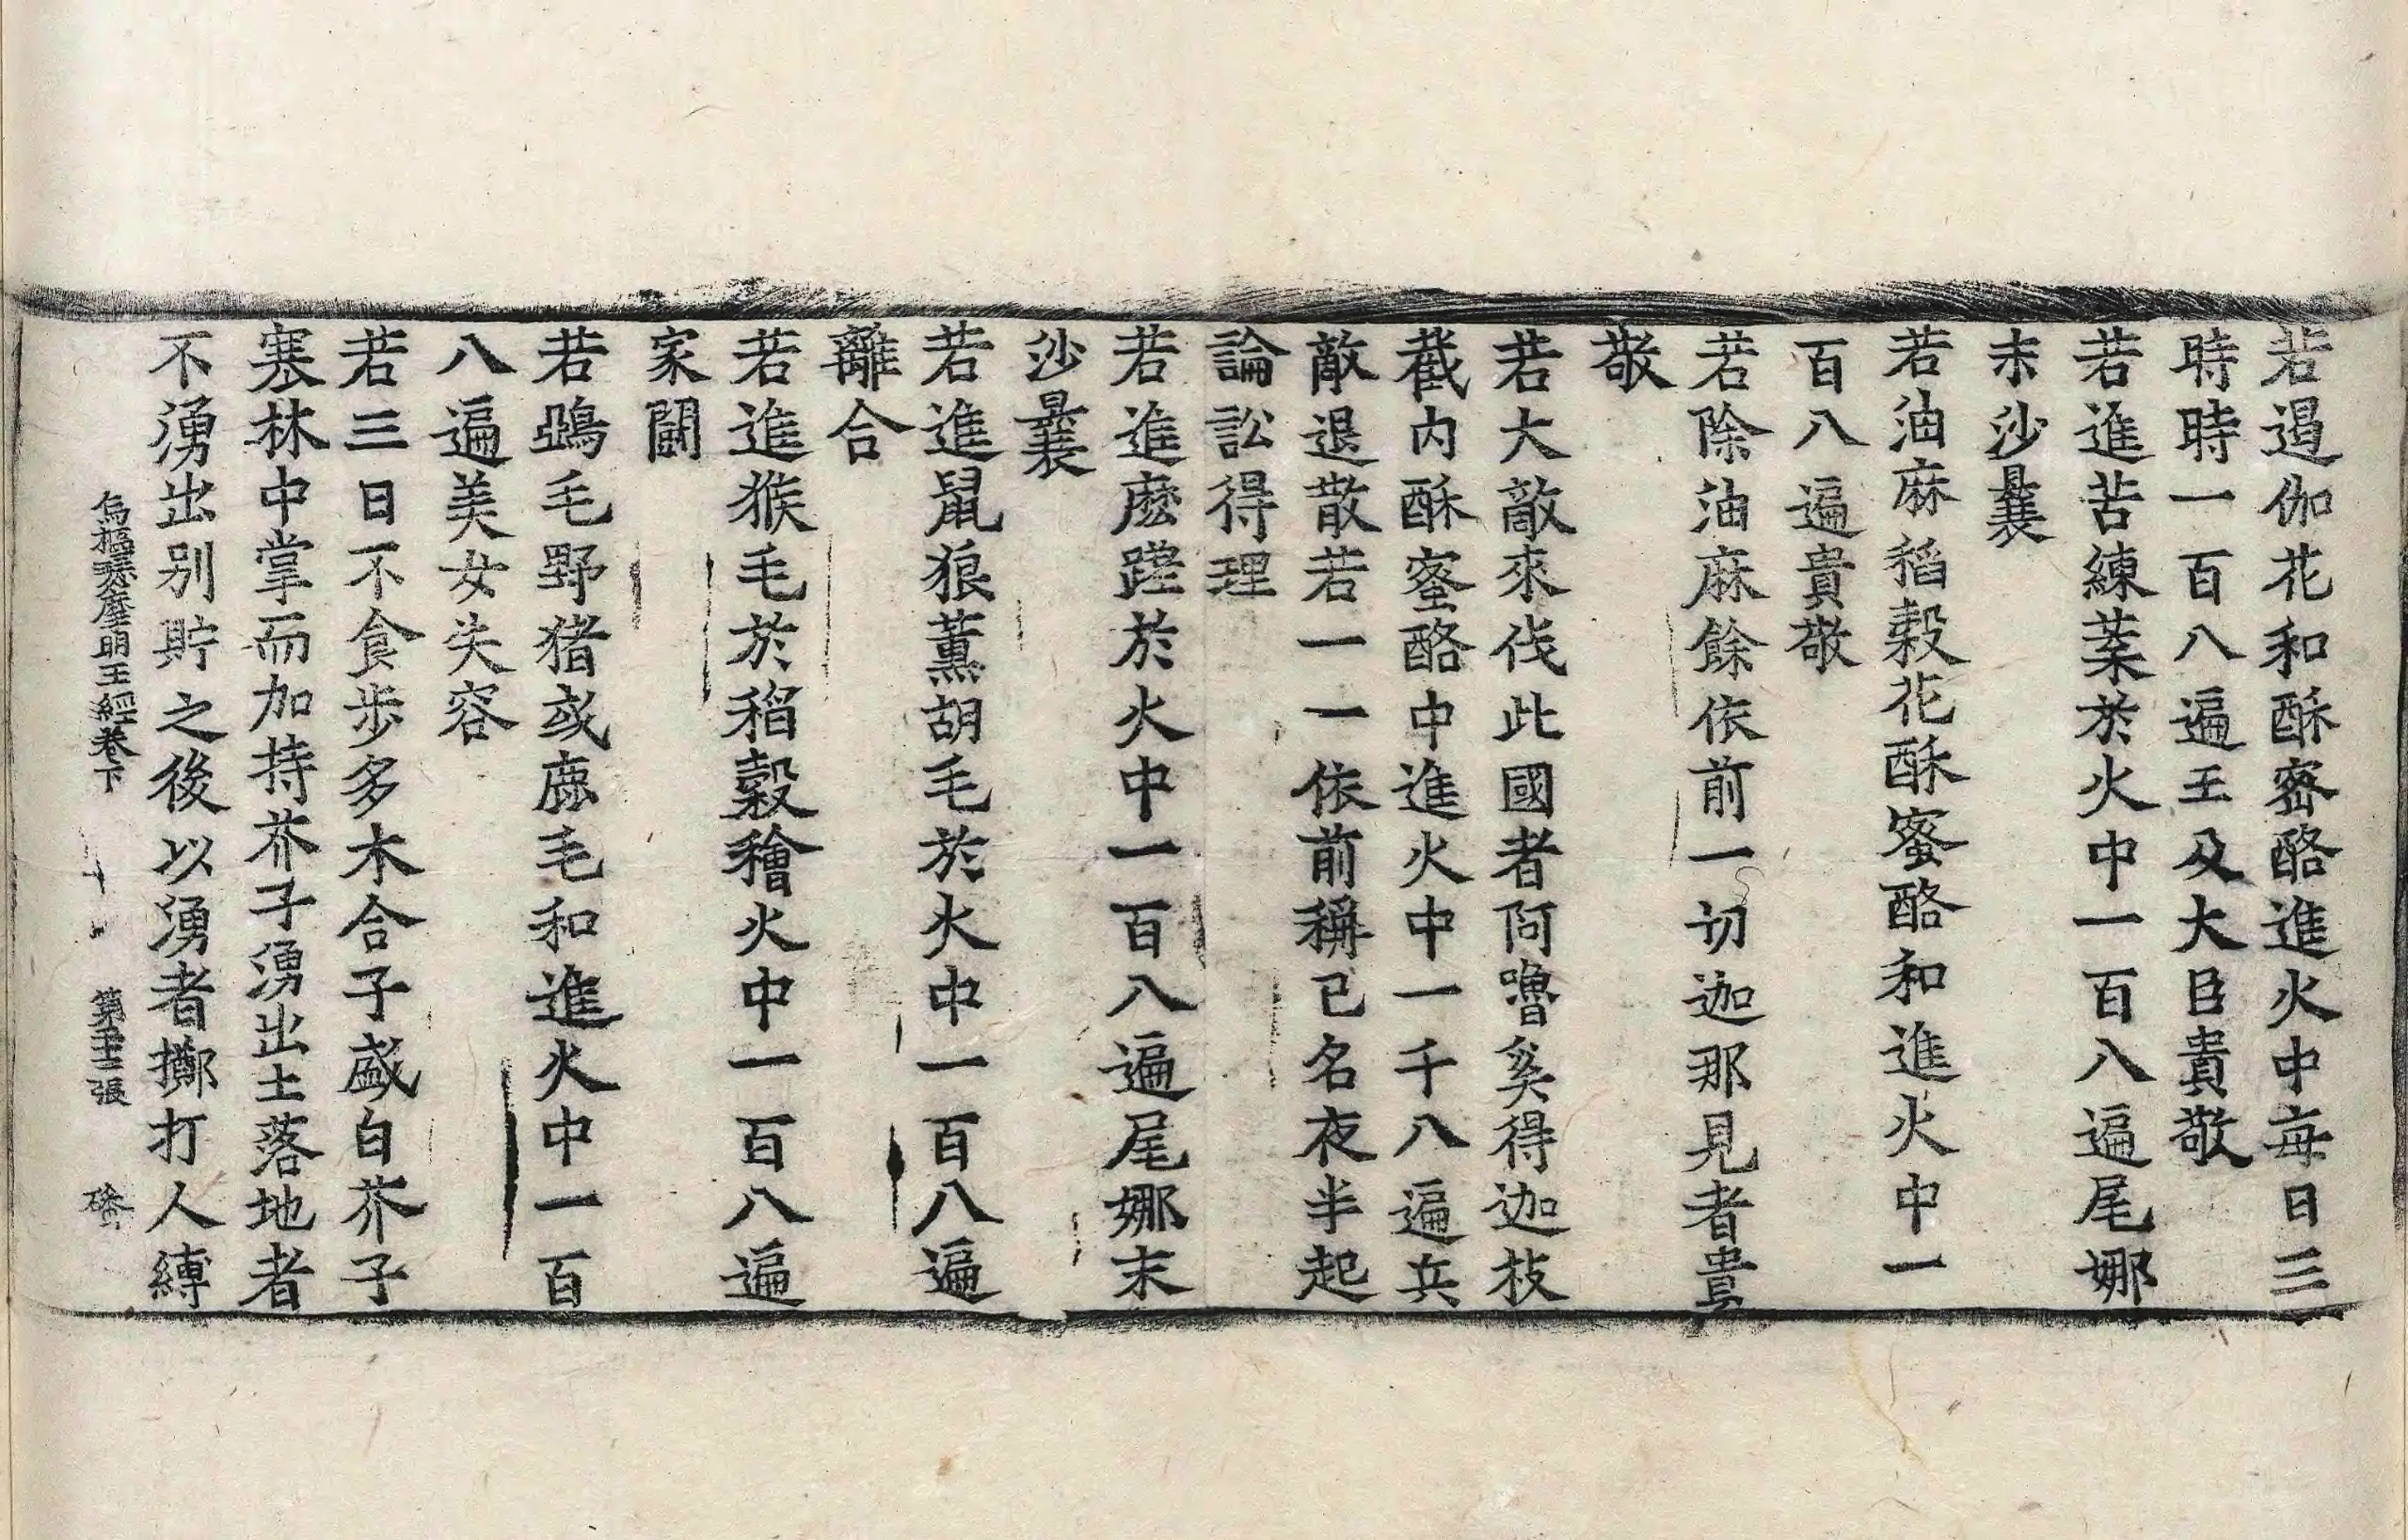 若遏伽花和酥蜜酪進火中每日三
時時一百八遍王及大臣貴敬
若進苦練葉於火中一百八遍尾娜
末沙曩
若油麻稻穀花酥蜜酪和進火中一
百八遍貴敬
若除油麻餘依前一切迦那見者貴
敬
若大敵來伐此國者阿嚕奚得迦枝
截內酥蜜酪中進火中一千八遍兵
敵退散若一一依前稱已名夜半起
論訟得理
若進麽蹉於火中一百八遍尾娜末
沙曩
若進鼠狼薰胡毛於火中一百八遍
離合
若進猴毛於稻穀穭火中一百八遍
家鬪
若鵄毛野猪或鹿毛和進火中一百
八遍美女失容
若三日不食步多木合子盛白芥子
塞林中掌而加持芥子湧出土落地者
不湧出別貯之後以湧者擲打人縛
烏樞瑟摩明王經卷下 第 張